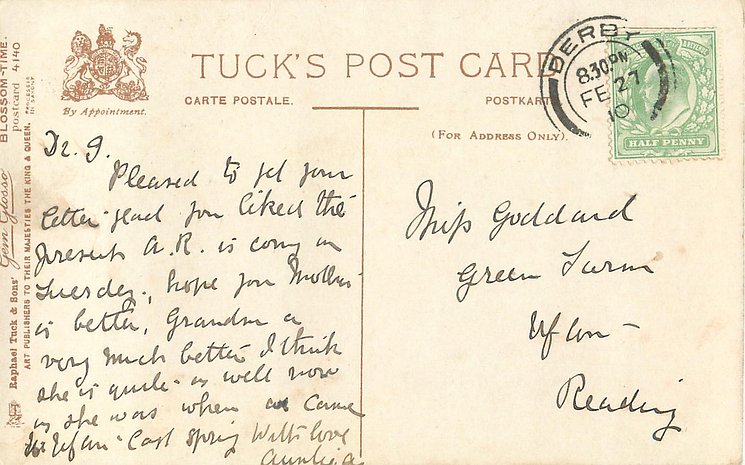 BLOSSOM-TIME.
postcard 4140
Gem Glosso
Raphael Tuck & Sons'
ART PUBLISHERS TO THEIR MAJESTIES THE KING & QUEEN.
By Appointment.
TUCK'S POST CARD
CARTE POSTALE.
POSTKARTE
(FOR ADDRESS ONLY).
DERBY
8.30PM
FE 27
10
HALF PENNY
Dr. G.
Pleased to get your
letter glad you liked the
present A.R. is coming on
Tuesday, hope you Mother
is better, Grandma is
very much better I think
she is quite as well now
as she was when we came
to Ufton last spring With love
Auntie A
Miss Goddard
Green Farm
Ufton
Reading